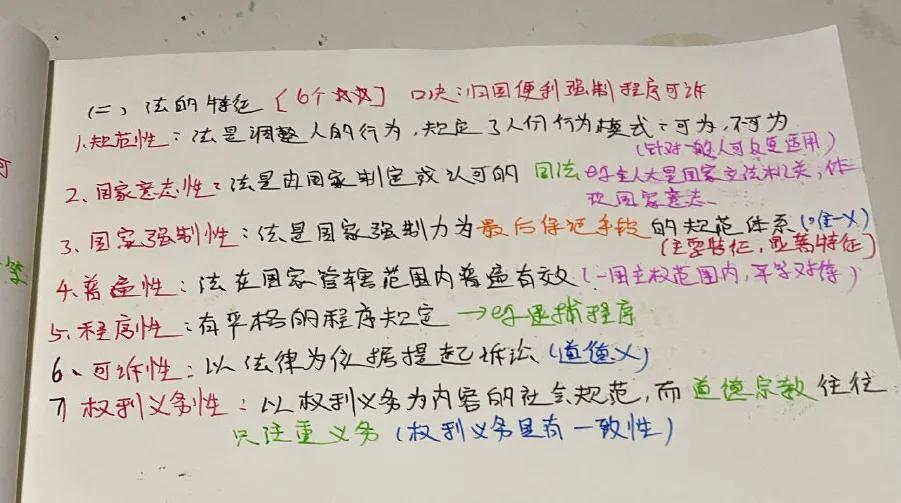 可
等
(二) 法的特征 [6个☆☆] 口决:归国便利强制程序可诉
1.规范性:法是调整人的行为,规定了人们行为模式:可为,不可为
(针对一般人可反复适用)
2.国家意志性:法是由国家制定或认可的 国法 eg全人大是国家立法机关,体
现国家意志、
3、国家强制性:法是国家强制力为最后保证手段的规范体系(唯一×)
(主要特征,显著特征)
4.普遍性:法在国家管辖范围内普遍有效(一国主权范围内,平等对待)
5.程序性:有严格的程序规定 →eg逮捕程序
6、可诉性:以法律为依据提起诉讼(道德×)
7 权利义务性:以权利义务为内容的社会规范,而道德宗教往往
只注重义务(权利义务具有一致性)